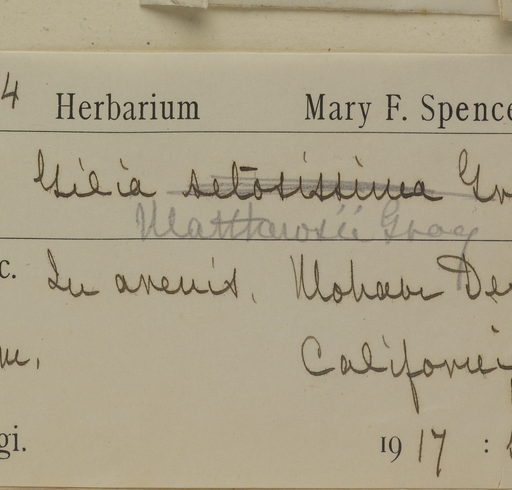 4 Herbarium Mary F. Spence
Gilia setosissima Gr
Matthewsii Gray
c. In arenis, Mohave De
m. Californi
gi. 1917 :